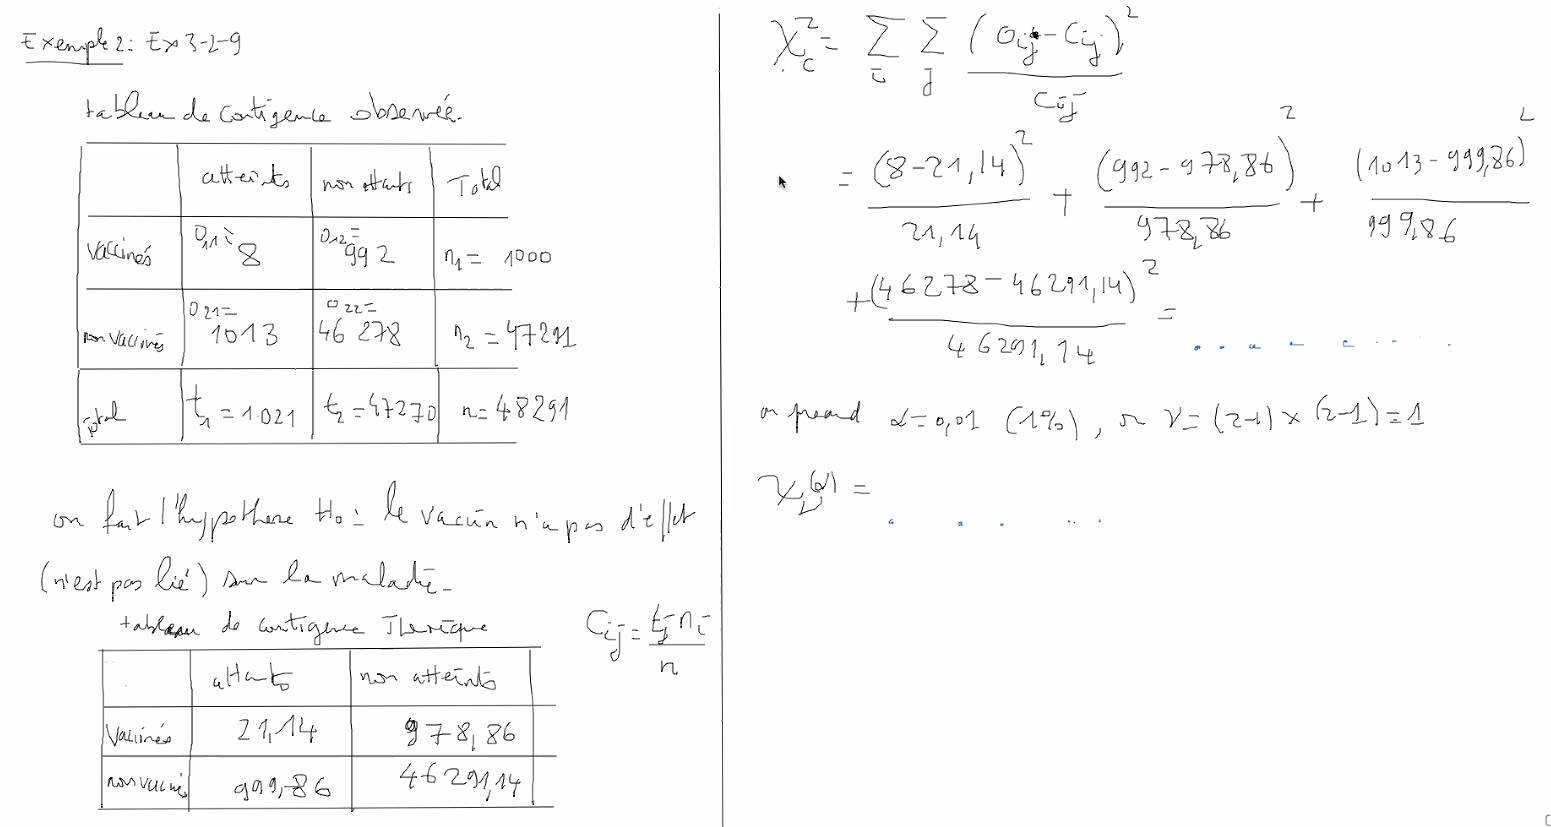 Exemple 2: Ex 3-2-9
tableau de contigence observée.
atteints non attaints Total
vaccinés O11= 8 O12= 992 n1 = 1000
non vaccinés O21= 1013 O22= 46 278 n2 = 47291
total t1 = 1021 t2 = 47270 n = 48291
on fait l'hypothese H0: le vaccin n'a pas d'effet
(n'est pas lié) sur la maladie.
tableau de contigence Theorique
Cij = tj ni / n
attaints non atteints
vaccinés 21,14 978,86
non vaccinés 999,86 46291,14
χ²c = Σi Σj (Oij - Cij)² / Cij
= (8 - 21,14)² / 21,14 + (992 - 978,86)² / 978,86 + (1013 - 999,86)² / 999,86
+ (46278 - 46291,14)² / 46291,14 =
on prend α = 0,01 (1%), on ν = (2-1) × (2-1) = 1
χν(α) =